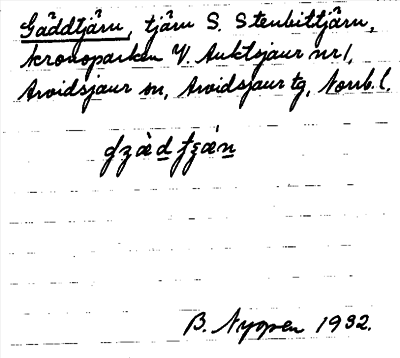 Gäddtjärn, tjärn S. Stenbittjärn,
Kronoparken V. Auktsjaur nr 1,
Arvidsjaur sn, Arvidsjaur tg, Norrb. l.
B. Nyman 1932.